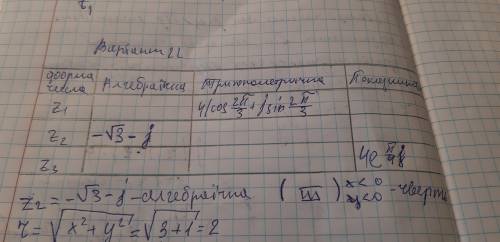 Варіант 22
форма числа Алгебраїчна Тригонометрична Показникова
z₁ 4(cos 2π/3 + j sin 2π/3
z₂ -√3 - j
z₃ 4e^(π/4 j)
z₂ = -√3 - j - алгебраїчна ( III ) x < 0 y < 0 - чверть
r = √(x² + y²) = √(3 + 1) = 2